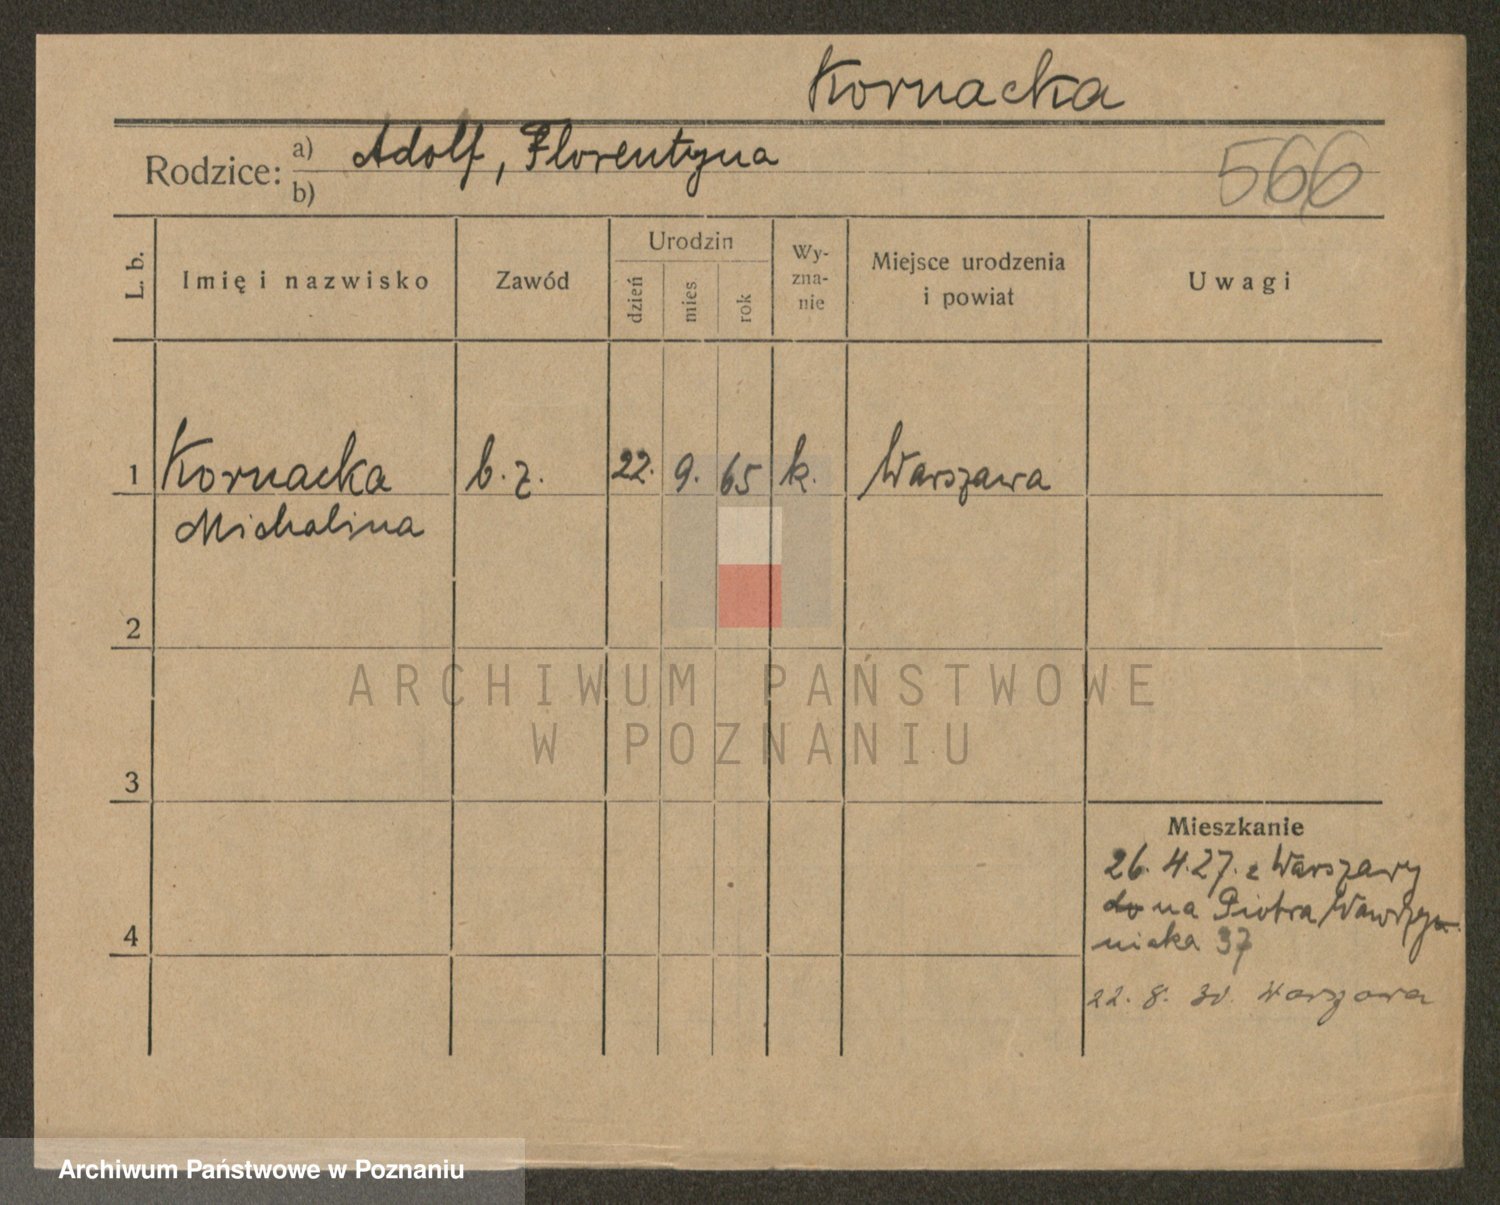 Kornacka
Rodzice: a) Adolf, Florentyna
b)
566
L. b.
Imię i nazwisko
Zawód
Urodzin
dzień
mies
rok
Wy-
zna-
nie
Miejsce urodzenia
i powiat
Uwagi
1 Kornacka b. z. 22. 9. 65 k. Warszawa
Michalina
2
ARCHIWUM PAŃSTWOWE
W POZNANIU
3
4
Mieszkanie
26. 4. 27. z Warszawy
do na Piotra Wawrzy-
niaka 37
22. 8. 30. Warszawa
Archiwum Państwowe w Poznaniu